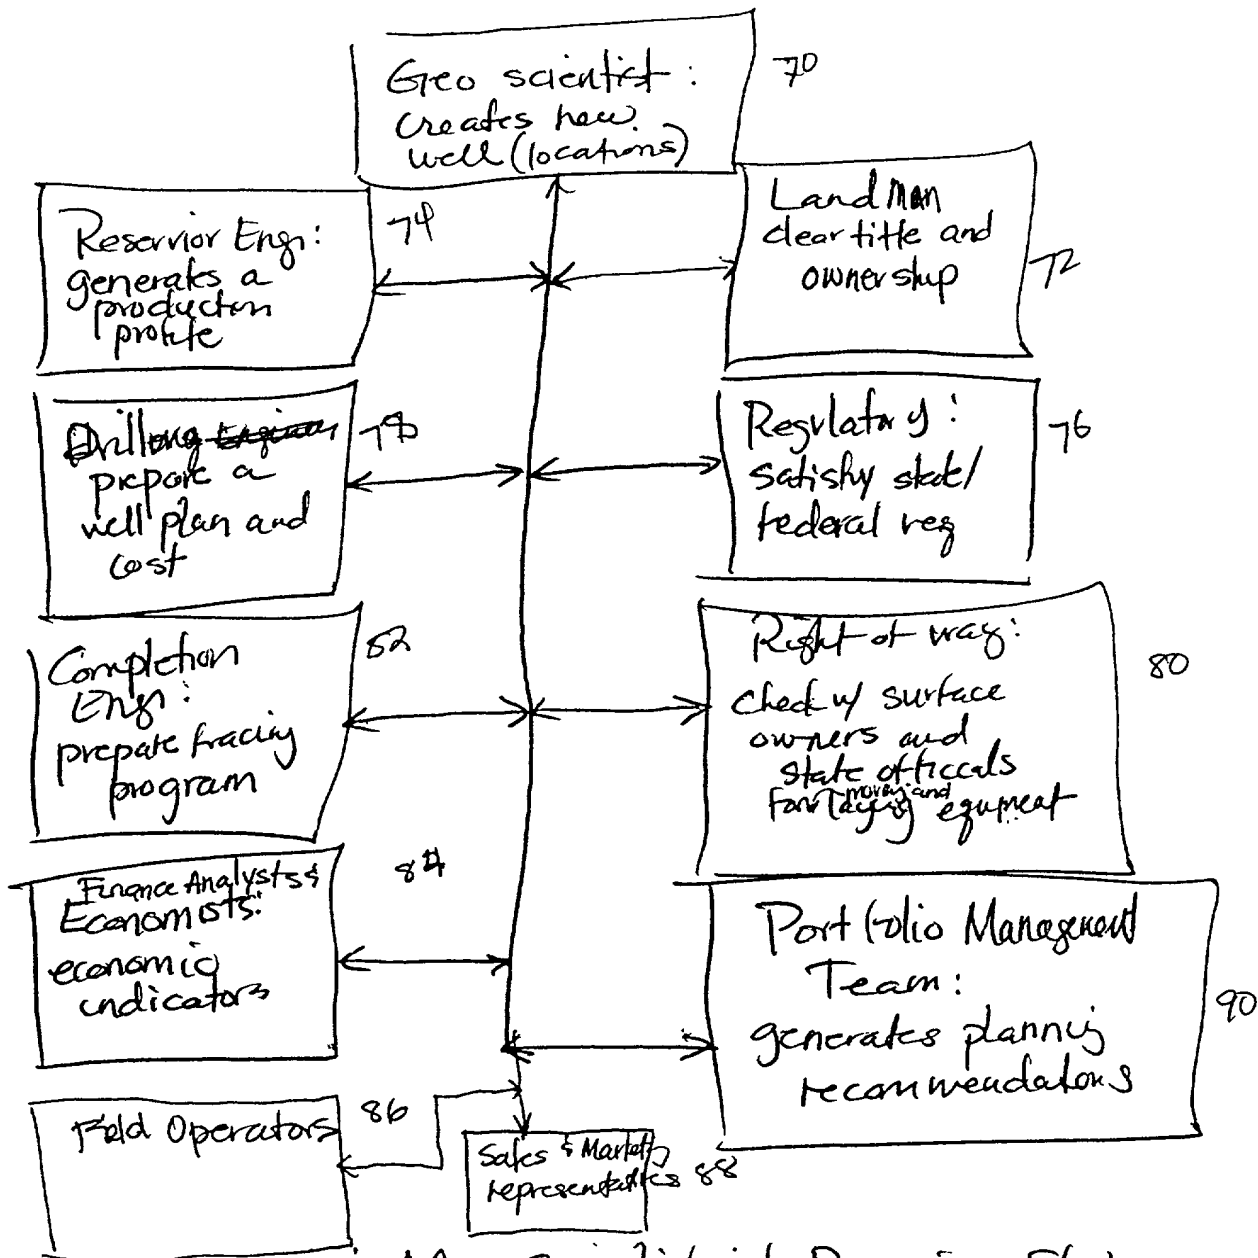 Geo scientist:
creates new
well (locations)
70
Reservior Engr:
generates a
production
profile
74
Land Man
clear title and
ownership
72
Drilling Engineer
prepare a
well plan and
cost
78
Regulatory:
satisfy state/
federal reg
76
Completion
Engr:
prepare fracing
program
82
Right of way:
check w/ surface
owners and
state officals
moving and
for laying equpment
80
Finance Analysts &
Economists:
economic
indicators
84
Portfolio Management
Team:
generates planning
recommendations
90
Field Operators
86
Sales & Marketg
representatives 88